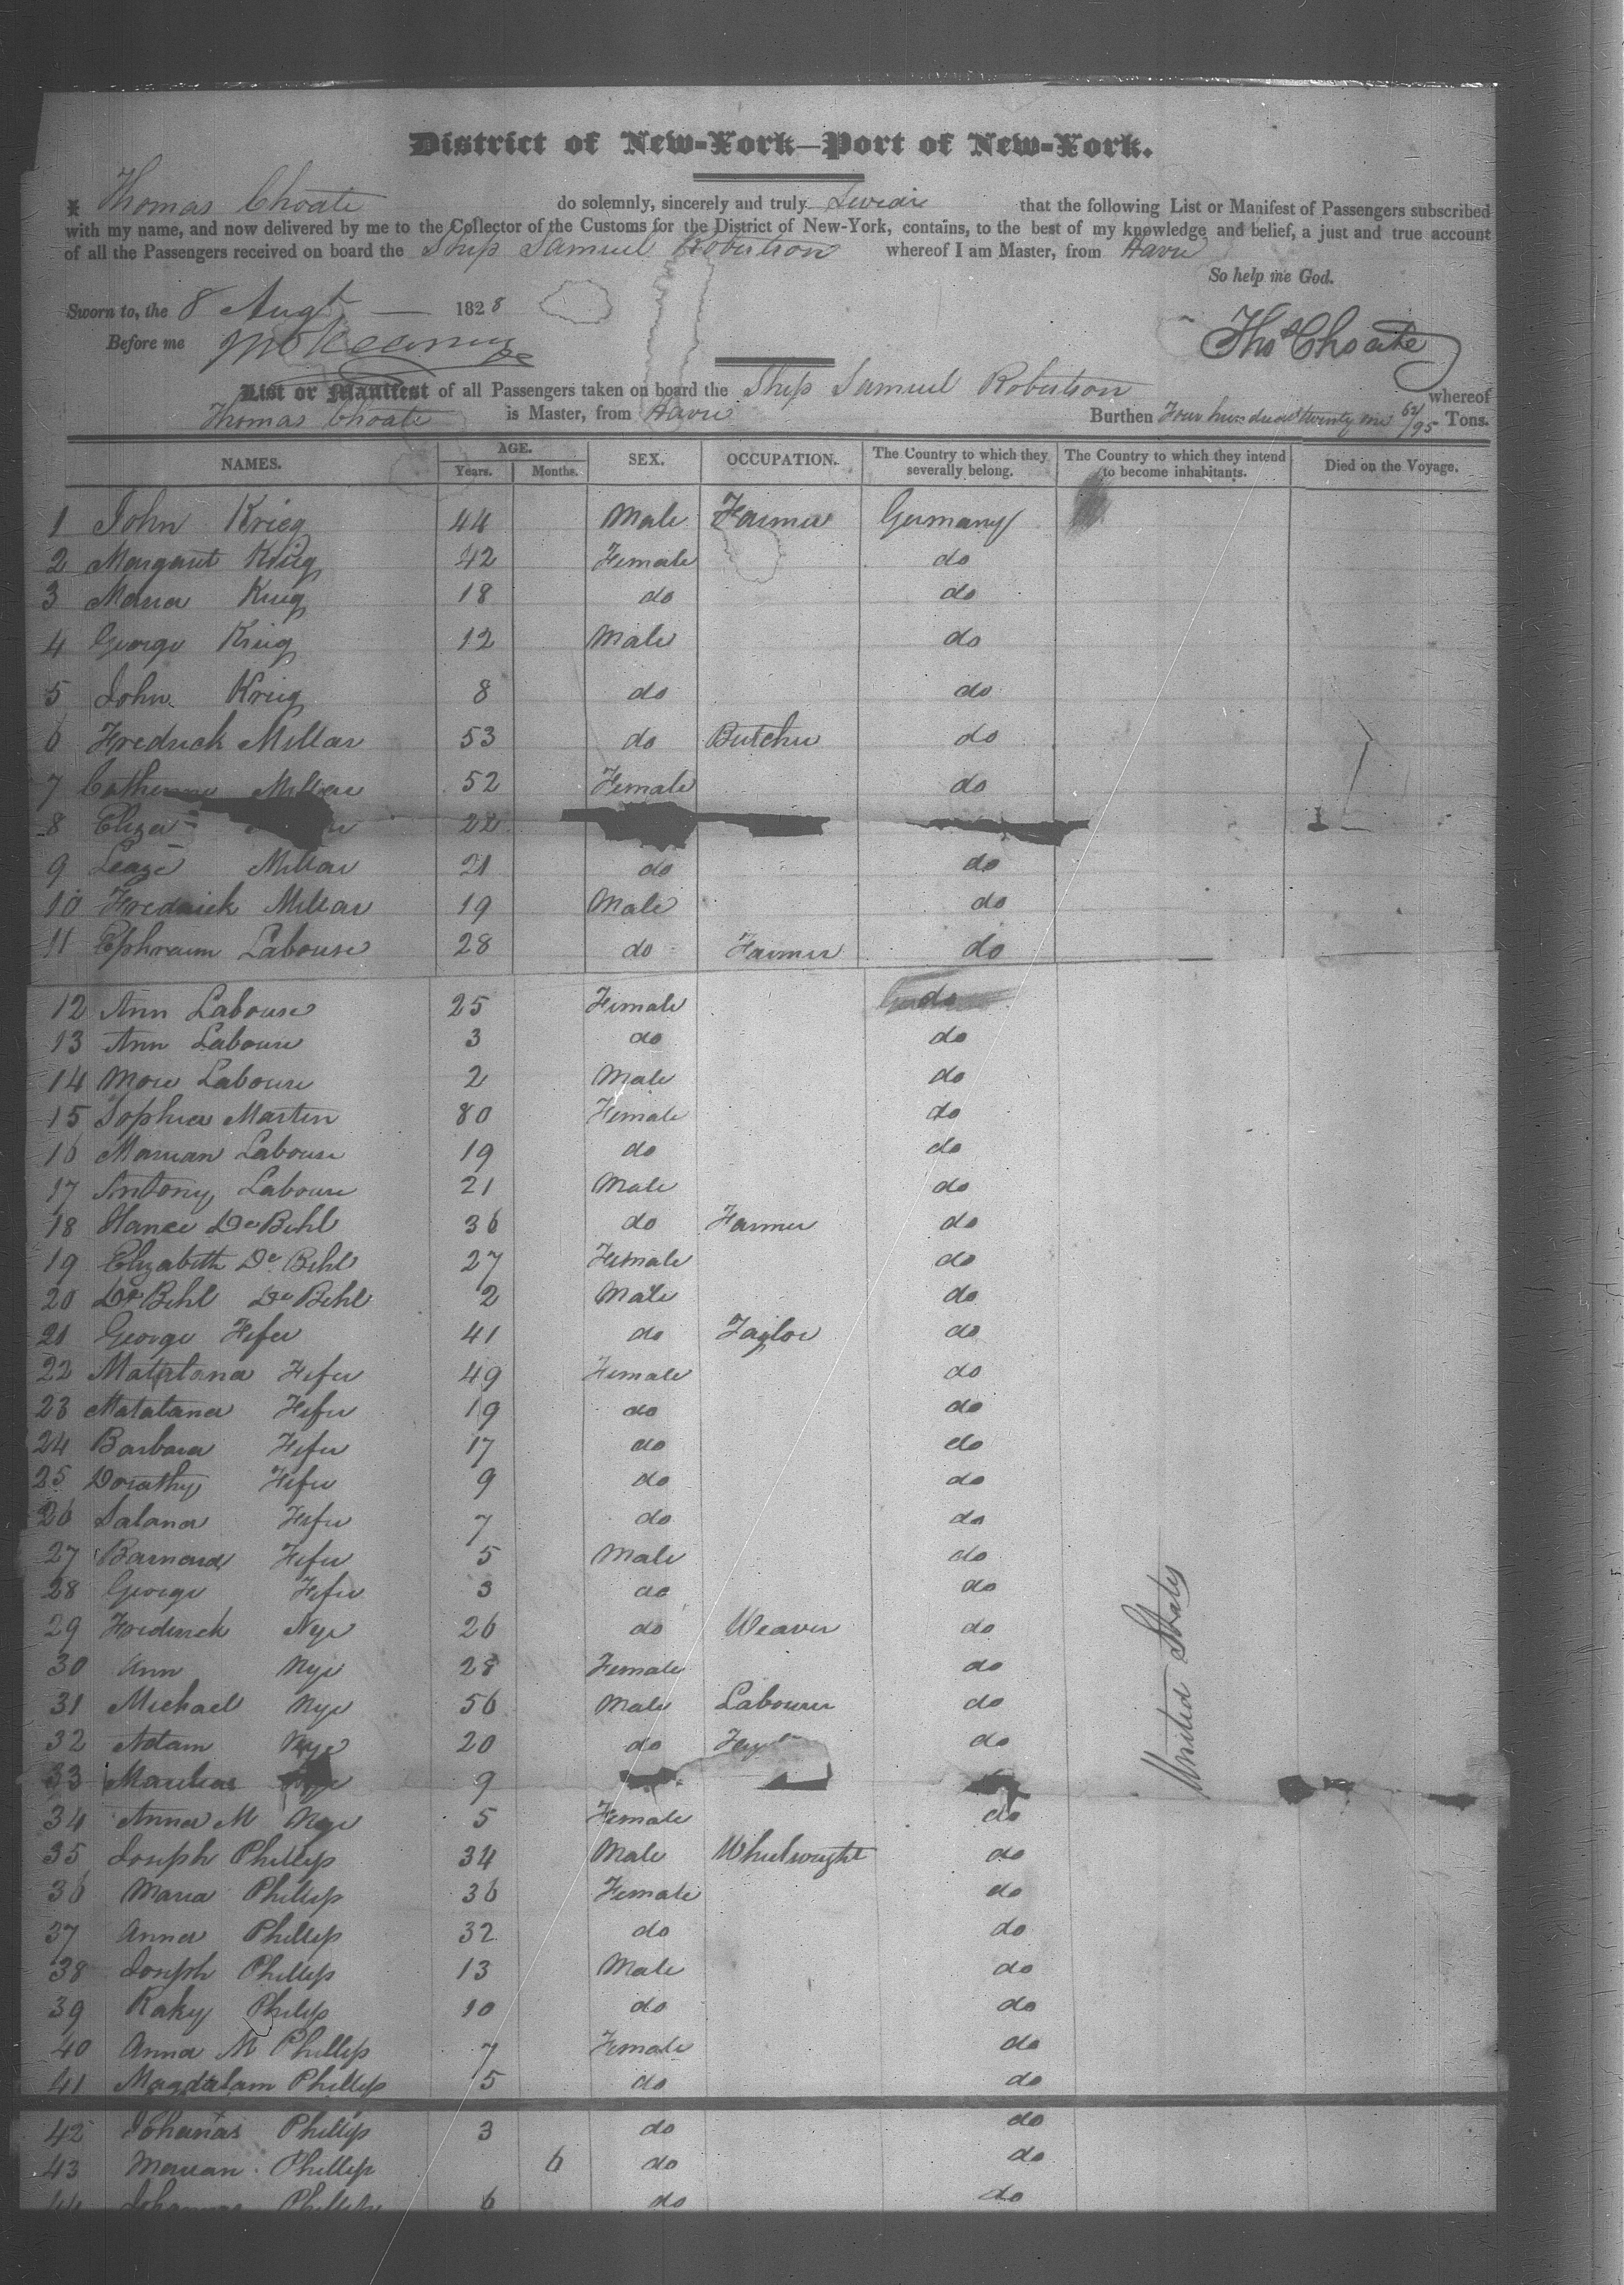 District of New-York—Port of New-York.
I, Thomas Choate do solemnly, sincerely and truly Swear that the following List or Manifest of Passengers subscribed
with my name, and now delivered by me to the Collector of the Customs for the District of New-York, contains, to the best of my knowledge and belief, a just and true account
of all the Passengers received on board the Ship Samuel Robertson whereof I am Master, from Havre
So help me God.
Sworn to, the 8 Augt 1828
Before me
Thos Choate
List or Manifest of all Passengers taken on board the Ship Samuel Robertson whereof
Thomas Choate is Master, from Havre Burthen Four hundred twenty one 62/95 Tons.
NAMES. AGE. Years. Months. SEX. OCCUPATION. The Country to which they severally belong. The Country to which they intend to become inhabitants. Died on the Voyage.
1 John Krieg 44 Male Farmer Germany
2 Margaret Krieg 42 Female do
3 Maria Krieg 18 do do
4 George Krieg 12 Male do
5 John Krieg 8 do do
6 Fredrick Millar 53 do Butcher do
7 Catherine Millar 52 Female do
8 Eliza 22
9 Millar 21 do do
10 Fredrick Millar 19 Male do
11 Ephraim Labouse 28 do Farmer do
12 Ann Labouse 25 Female do
13 Ann Labouse 3 do do
14 Labouse 2 Male do
15 Sophia Martin 80 Female do
16 Marian Labouse 19 do do
17 Antony Labouse 21 Male do
18 Hance De Behl 36 do Farmer do
19 Elizabeth De Behl 27 Female do
20 De Behl De Behl 2 Male do
21 George Fefer 41 do Taylor do
22 Matalana Fefer 49 Female do
23 Matalana Fefer 19 do do
24 Barbara Fefer 17 do do
25 Dorathy Fefer 9 do do
26 Salana Fefer 7 do do
27 Barnard Fefer 5 Male do
28 George Fefer 3 do do
29 Frederick Nye 26 do Weaver do
30 Ann Nye 28 Female do
31 Michael Nye 56 Male Labourer do
32 Adam Nye 20 do do
33 9
34 Anna M Nye 5 Female do
35 Joseph Phillip 34 Male Whelwright do
36 Maria Phillip 36 Female do
37 Anna Phillip 32 do do
38 Joseph Phillip 13 Male do
39 Raky Philip 10 do do
40 Anna M Phillip 7 Female do
41 Magdalam Phillip 5 do do
42 Johanas Phillip 3 do do
43 Marian Phillip 6 do do
44 Johannas Phillip 6 do do
United States